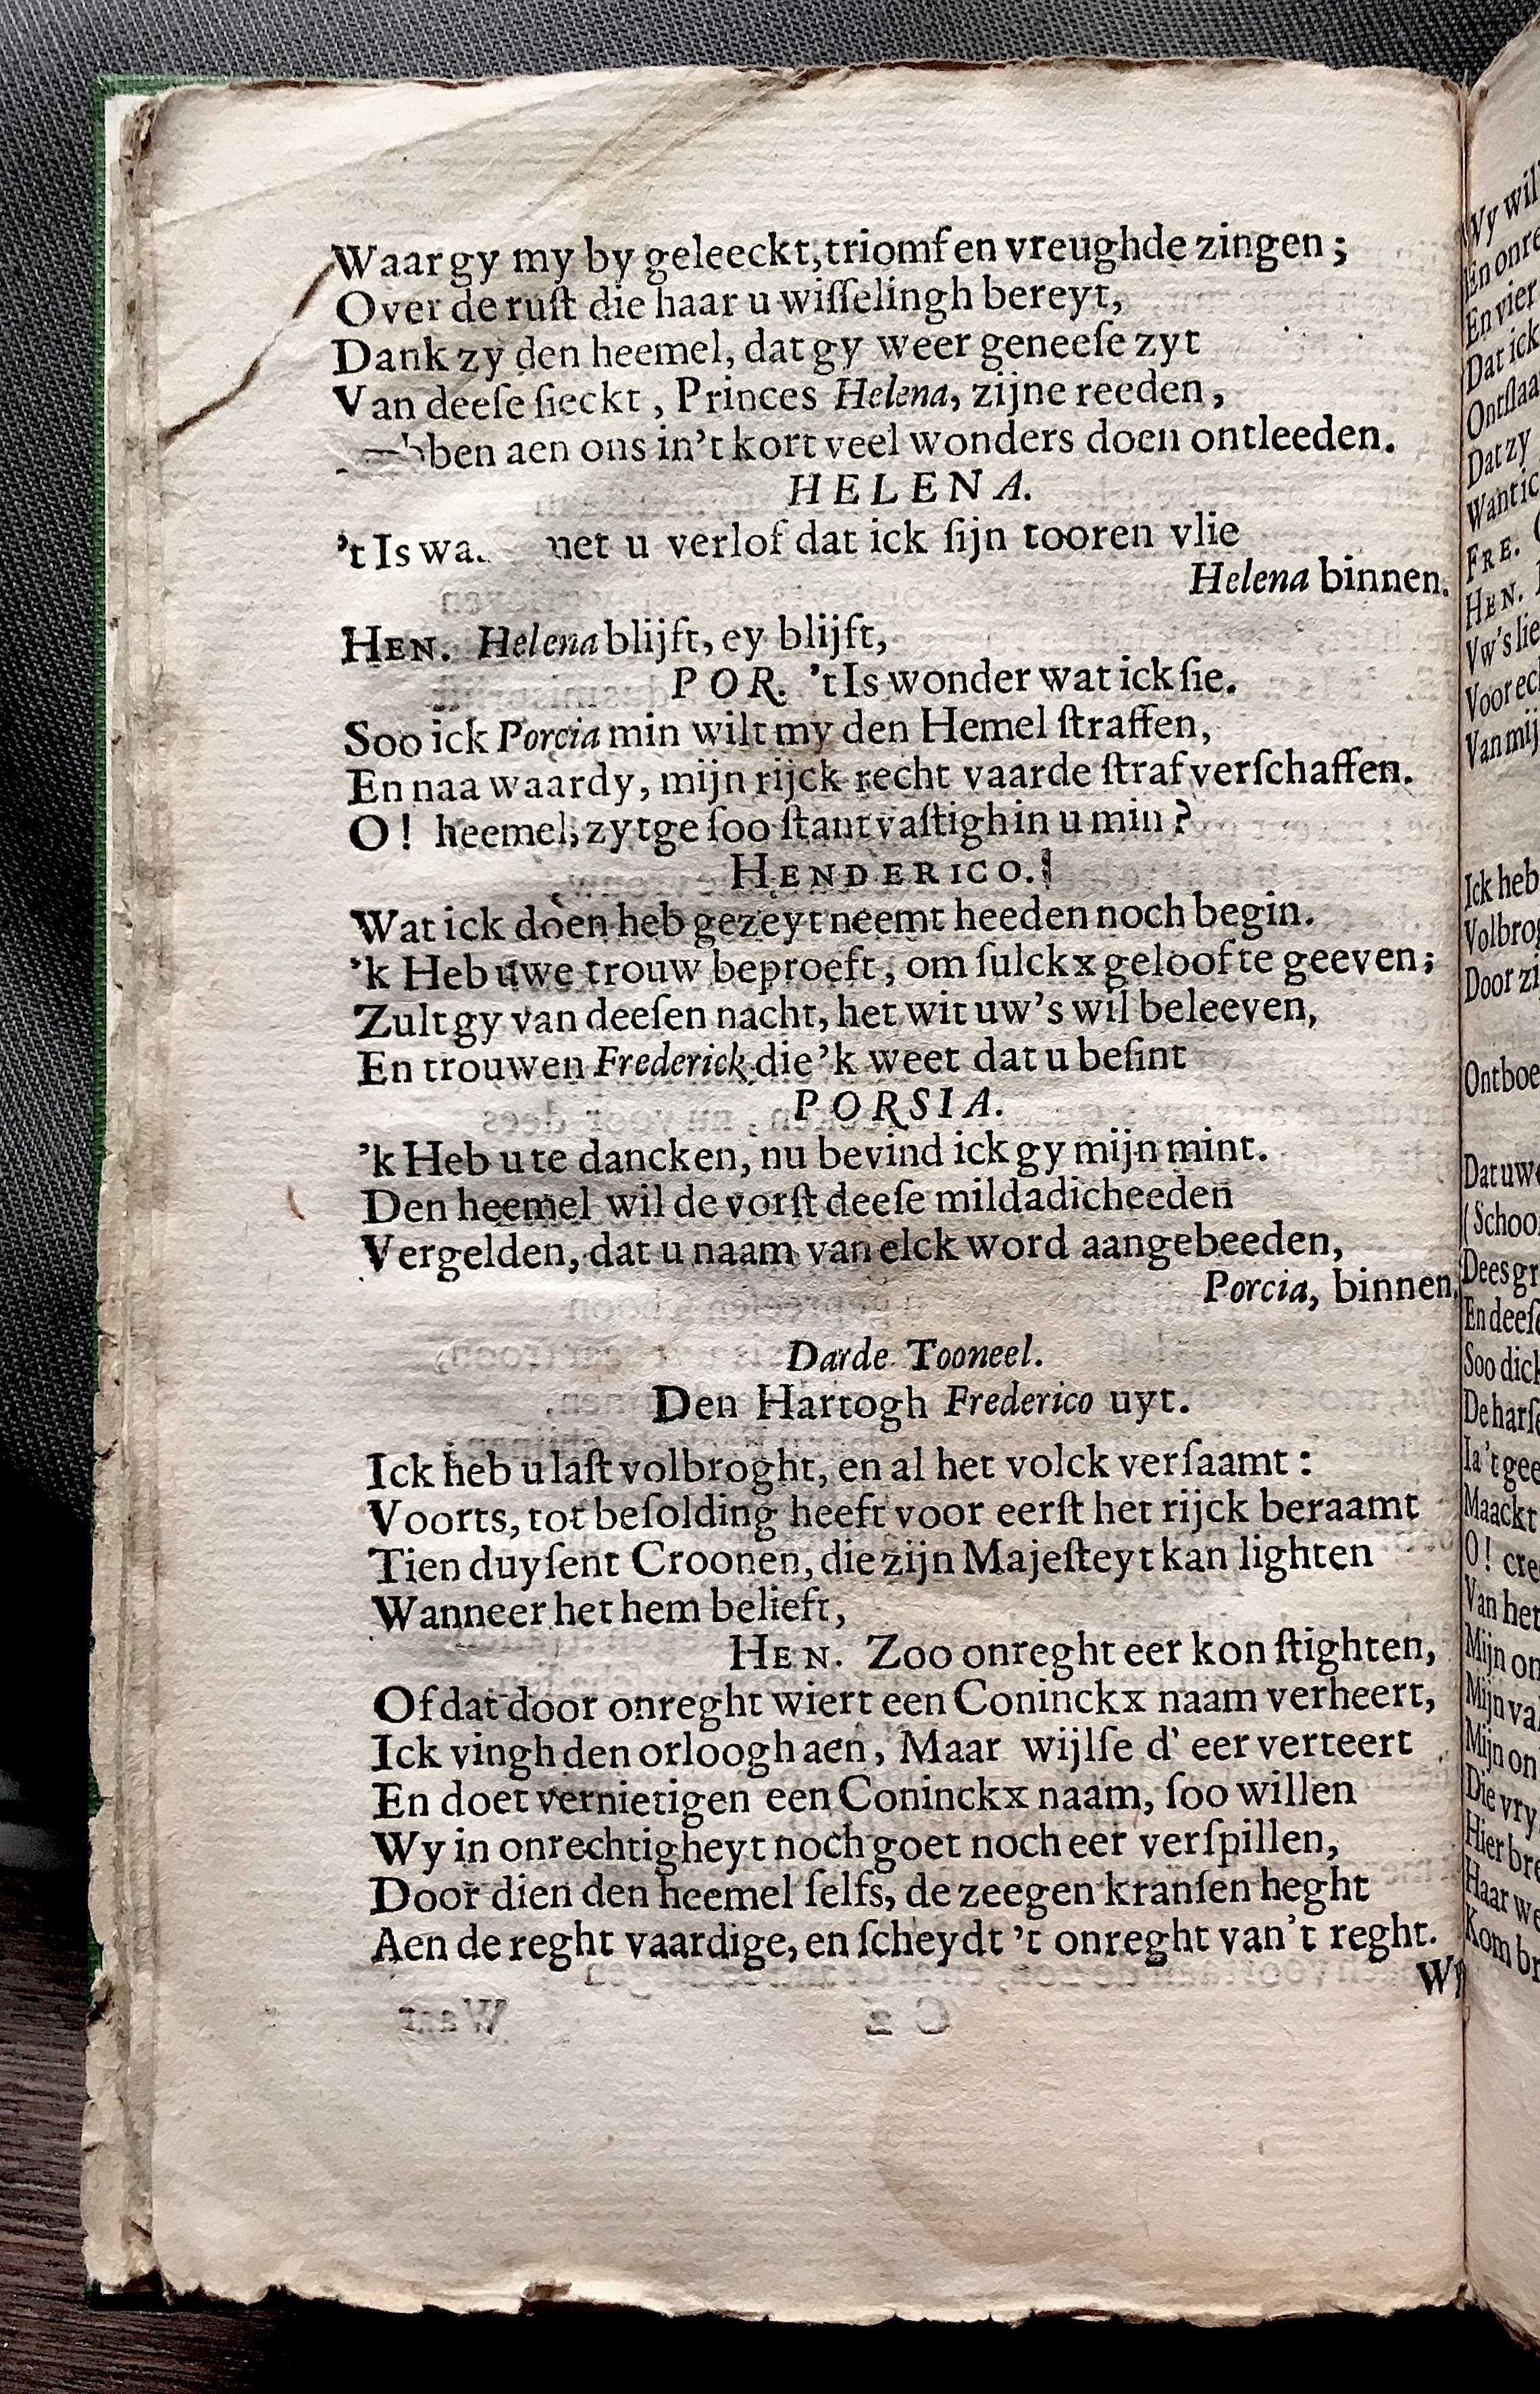 Waar gy my by geleeckt, triomf en vreughde zingen;
Over de ruſt die haar u wiſſelingh bereyt,
Dank zy den heemel, dat gy weer geneeſe zyt
Van deeſe ſieckt, Princes Helena, zijne reeden,
aen ons in't kort veel wonders doen ontleeden.
HELENA.
't Is u verlof dat ick ſijn tooren vlie
Helena binnen.
HEN. Helena blijft, ey blijft,
POR. 't Is wonder wat ick ſie.
Soo ick Porcia min wilt my den Hemel ſtraffen,
En naa waardy, mijn rijck recht vaarde ſtraf verſchaffen.
O! heemel, zytge ſoo ſtantvaſtigh in u min?
HENDERICO.
Wat ick doen heb gezeyt neemt heeden noch begin.
'k Heb uwe trouw beproeft, om ſulckx geloof te geeven;
Zult gy van deeſen nacht, het wit uw's wil beleeven,
En trouwen Frederick die 'k weet dat u beſint
PORSIA.
'k Heb u te dancken, nu bevind ick gy mijn mint.
Den heemel wil de vorſt deeſe mildadicheeden
Vergelden, dat u naam van elck word aangebeeden,
Porcia, binnen.
Darde Tooneel.
Den Hartogh Frederico uyt.
Ick heb u laſt volbroght, en al het volck verſaamt:
Voorts, tot beſolding heeft voor eerſt het rijck beraamt
Tien duyſent Croonen, die zijn Majeſteyt kan lighten
Wanneer het hem belieft,
HEN. Zoo onreght eer kon ſtighten,
Of dat door onreght wiert een Coninckx naam verheert,
Ick vingh den orloogh aen, Maar wijlſe d' eer verteert
En doet vernietigen een Coninckx naam, ſoo willen
Wy in onrechtigheyt noch goet noch eer verſpillen,
Door dien den heemel ſelfs, de zeegen kranſen heght
Aen de reght vaardige, en ſcheydt 't onreght van't reght.
Wy